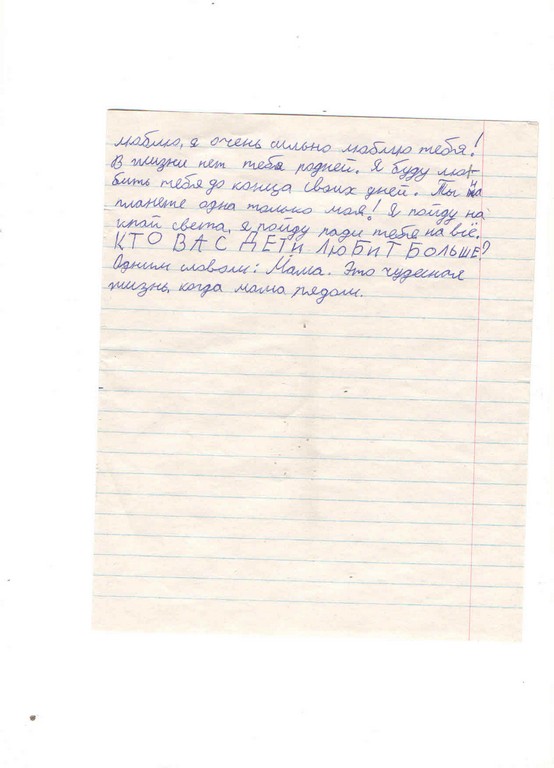 люблю, я очень сильно люблю тебя!
В жизни нет тебя родней. Я буду лю-
бить тебя до конца своих дней. Ты на
планете одна только моя! Я пойду на
край света, я пойду ради тебя на всё.
КТО ВАС ДЕТИ ЛЮБИТ БОЛЬШЕ?
Одним словом: Мама. Это чудесная
жизнь, когда мама рядом.